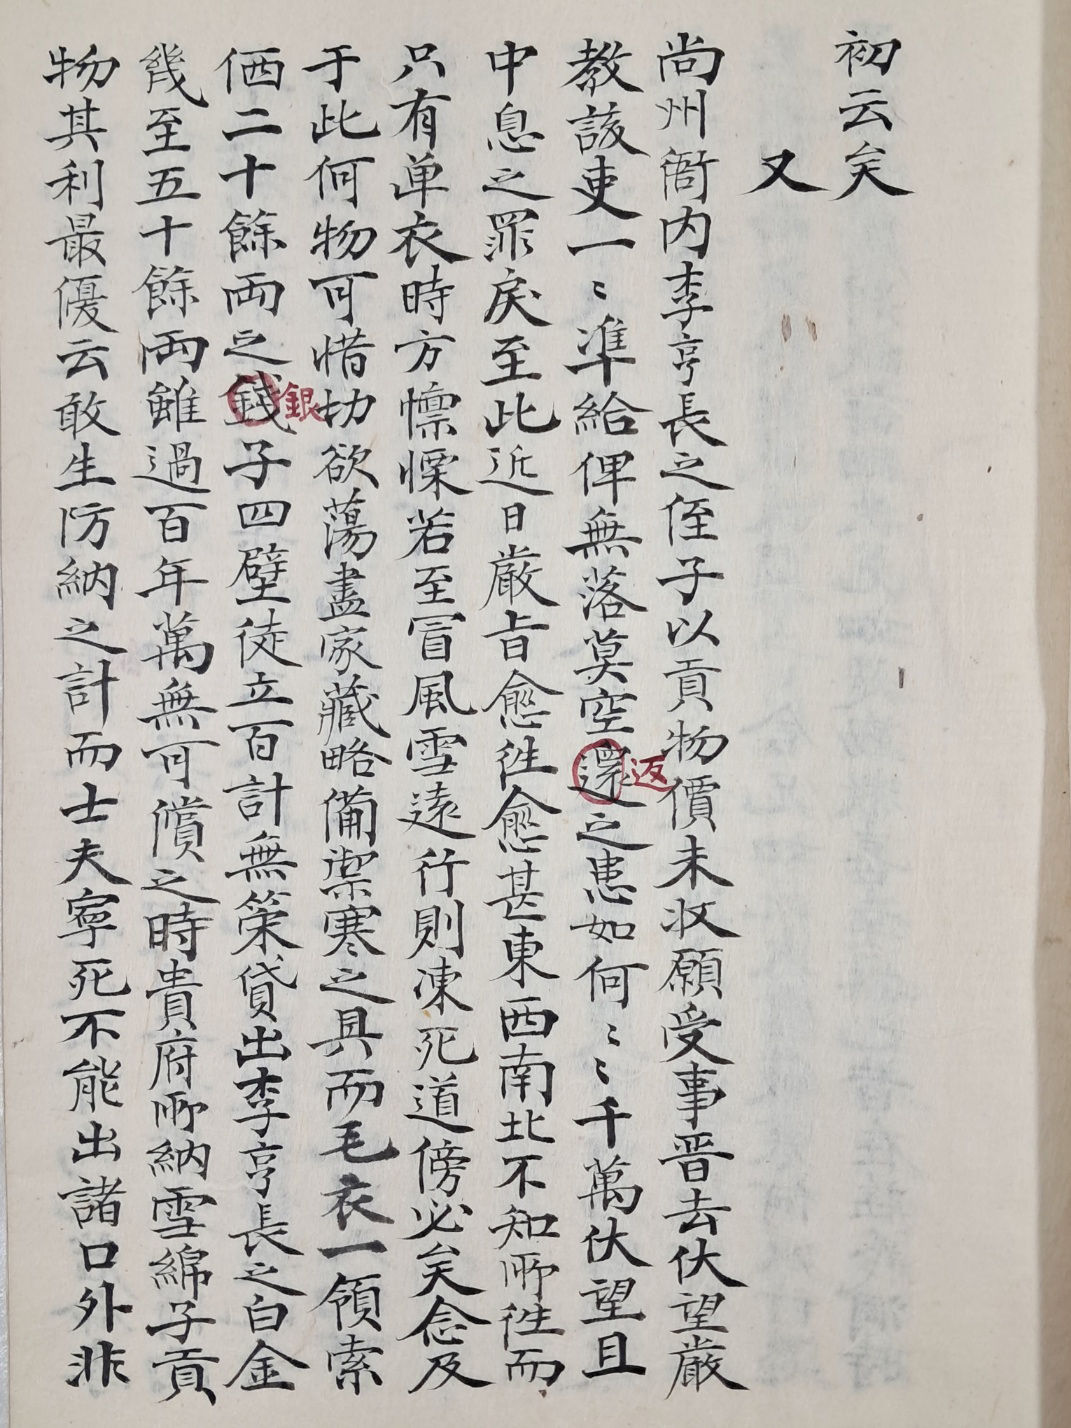 初云矣
又
尚州衙内李亨長之侄子以貢物價未收願受事晋去伏望嚴
教該吏一〻準給俾無落莫空還返之患如何〻〻千萬伏望且
中息之罪戾至此近日嚴旨愈徃愈甚東西南北不知所徃而
只有单衣時方懍慄若至冒風雪遠行則凍死道傍必矣念及
于此何物可惜切欲蕩盡家藏略備禦寒之具而毛衣一領索
価二十餘両之錢銀子四壁徒立百計無策貸出李亨長之白金
幾至五十餘両雖過百年萬無可償之時貴府所納雪綿子貢
物其利最優云敢生防納之計而士夫寧死不能出諸口外非